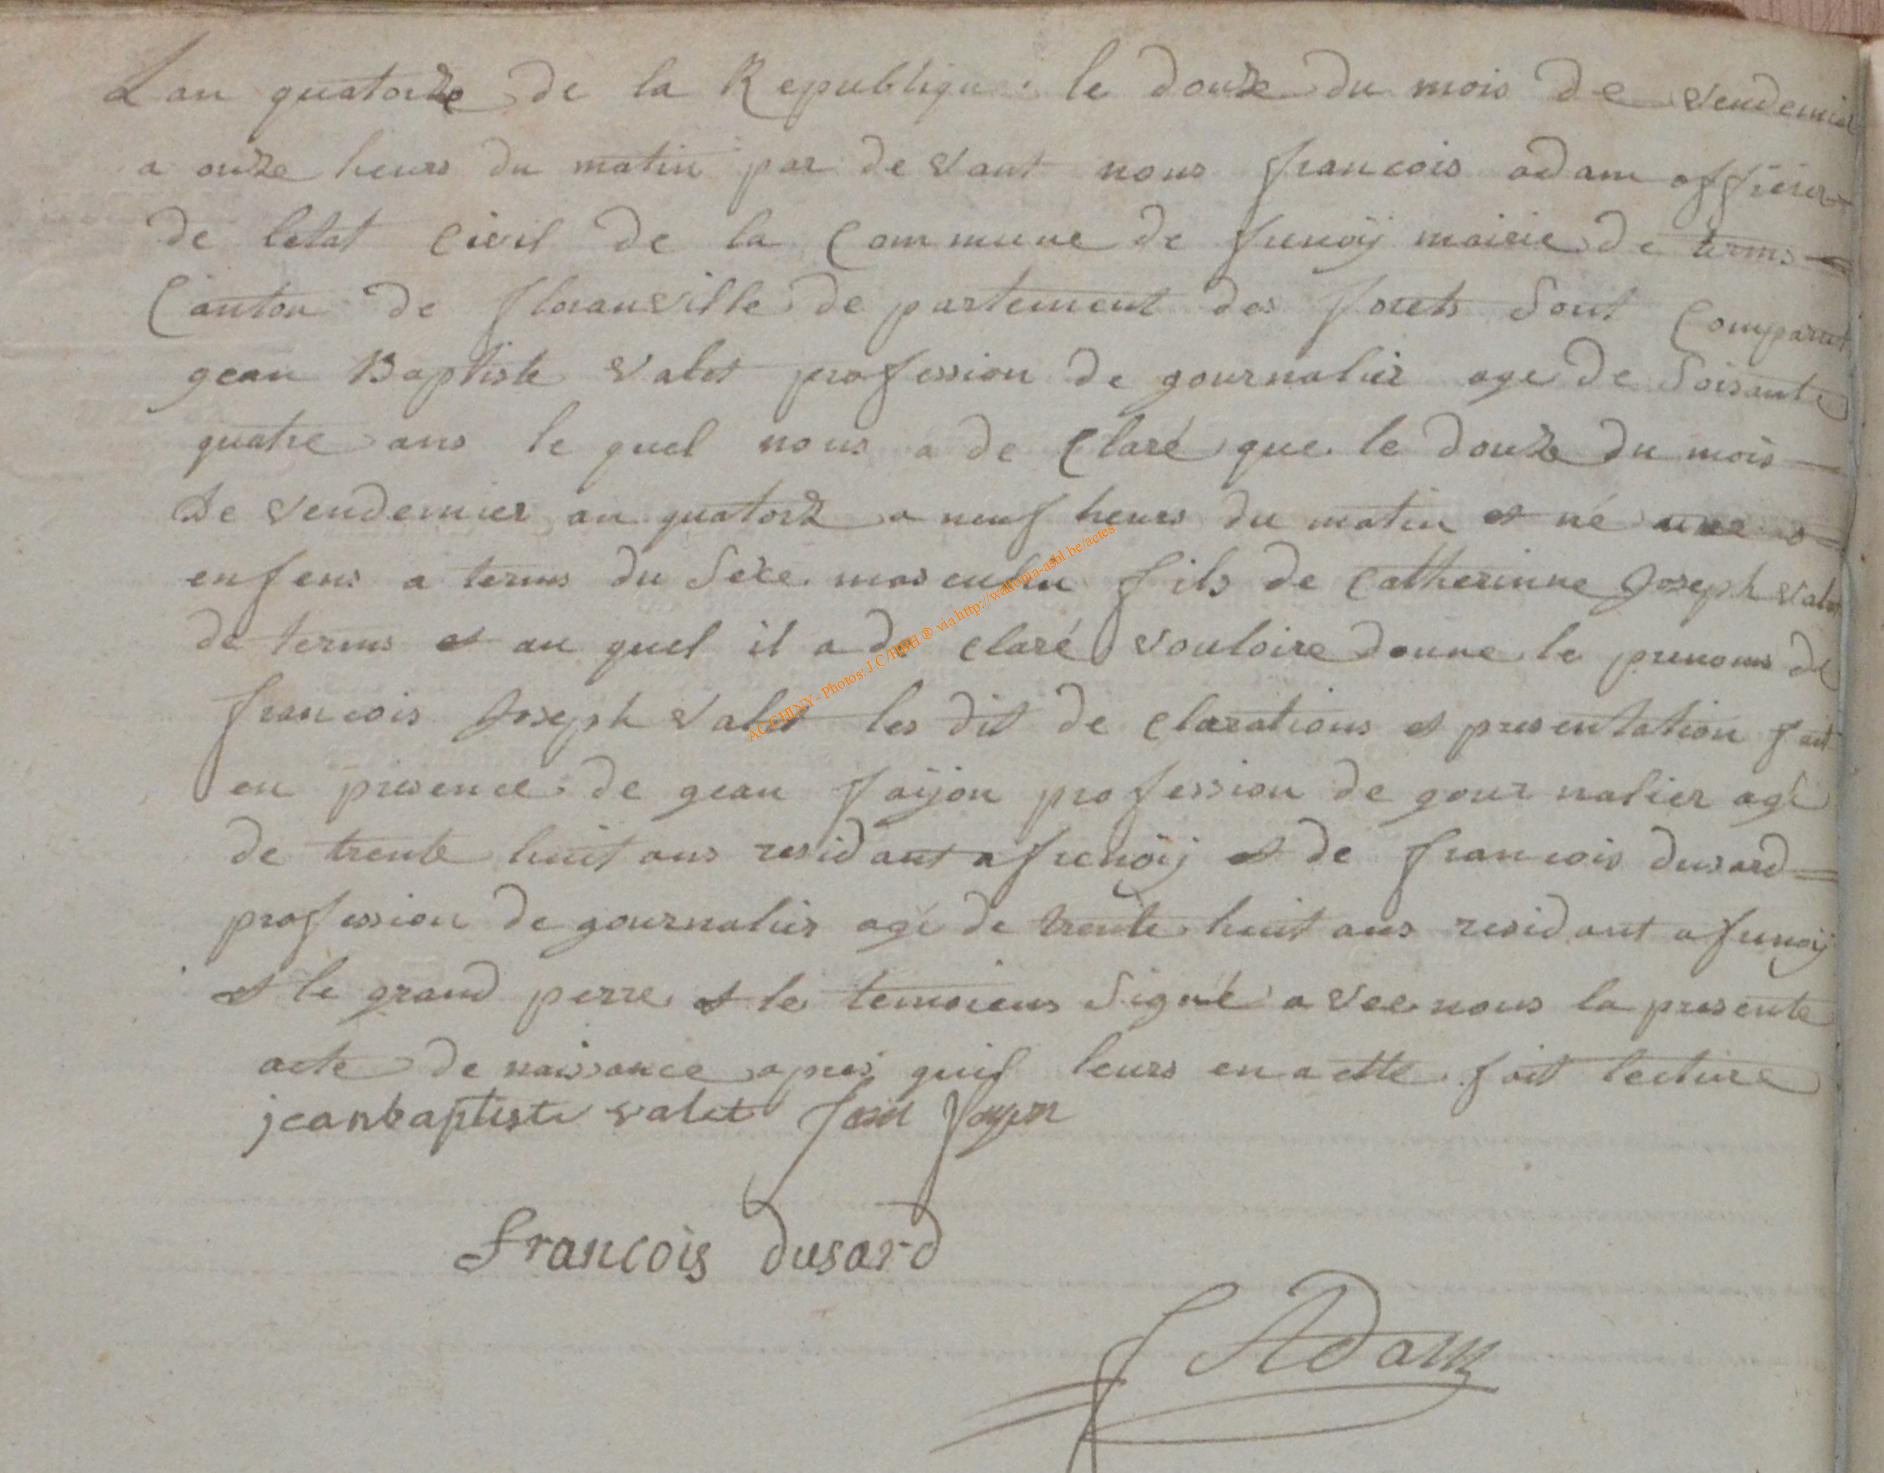 Lan quatorze de la Republique le douze du mois de vendemier
a onze heurs du matin par de vant nous francois adam officier
de letat Civil de la Commune de frenoÿ mairie de terms
Canton de floranville de partement des forets Sont Comparut
gean Baptiste valet profession de gournalier age de Soisante
quatre ans le quel nous a de Claré que le douze du mois
De vendemier an quatorz a neuf heurs du matin et né une
enfens a terms du Sexe masculin fils de Catherinne Joseph valet
de terms et au quel il a de claré vouloire donne le prenoms de
francois Joseph valet les dit de clarations et presentation fait
en presence de gean faÿon profession de gour nalier agé
de trente huit ans residant a frenoÿ et de francois dusard
profession de gournalier agé de trente huit ans residant a frenoÿ
et le grand perre et le temoiens Signé avec nous la presente
acte de naissance apres quil leurs en a ette fait lecture
jean baptiste valet Jean fayon
francois dusard
f Adam
ACCHINY - Photos: J.C/HBH ® via http://wallonia-asbl.be/actes